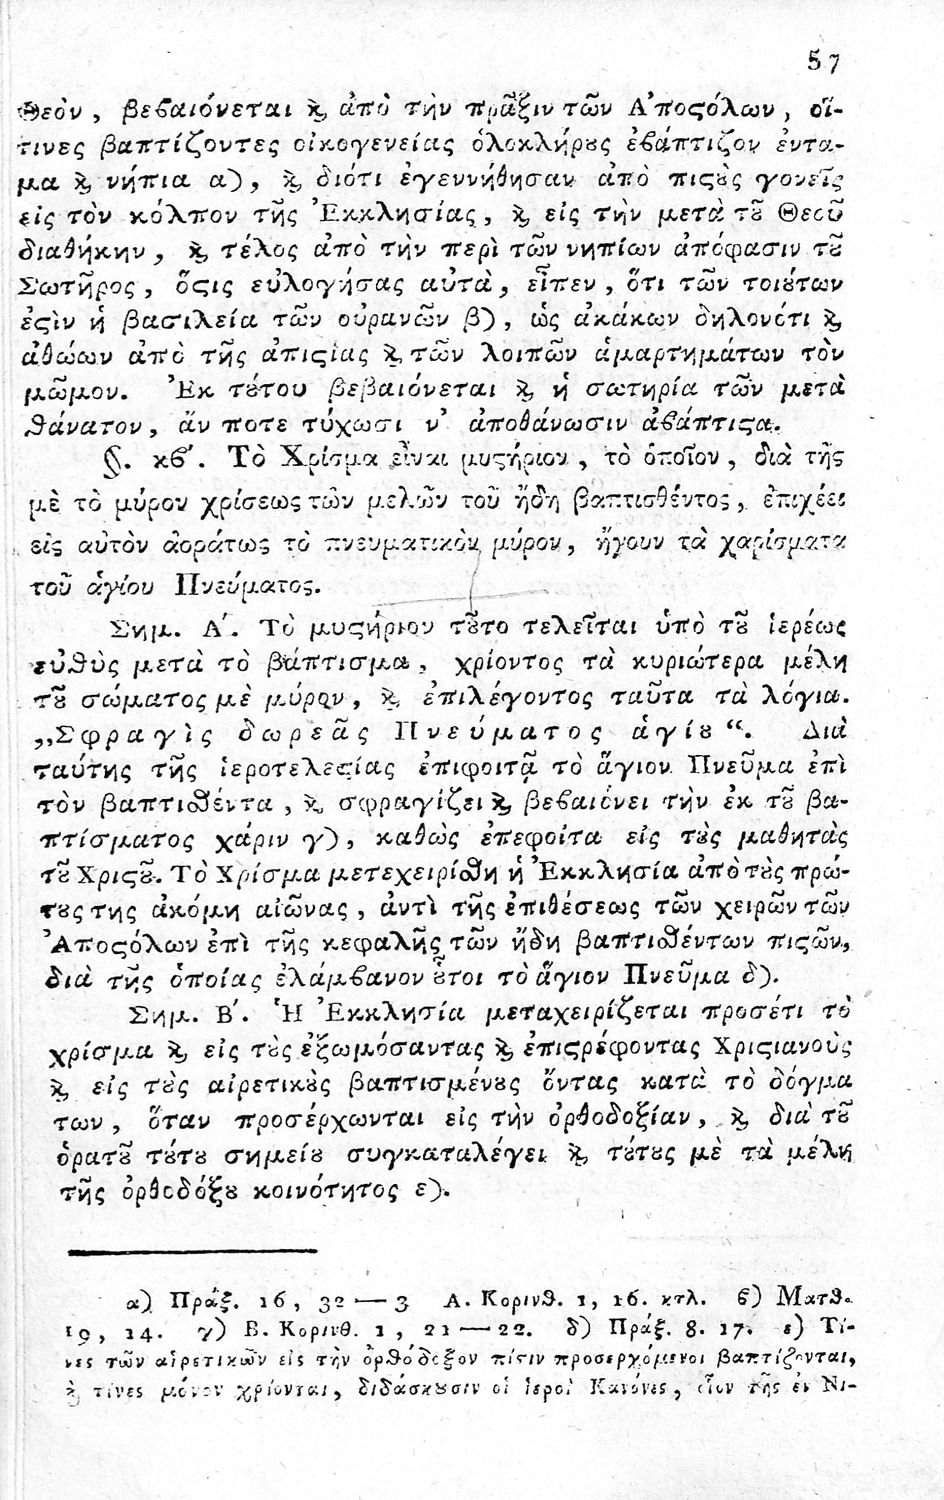 57
Θεὸν, βεϐαιόνεται ϗ ἀπὸ τὴν πρᾶξιν τῶν Ἀποϛόλων, οἵ-
τινες βαπτίζοντες οἰκογενείας ὁλοκλήρȣς ἐϐάπτιζον ἐντα-
μα ϗ νήπια α), ϗ διότι ἐγεννήθησαν ἀπὸ πιϛȣ̀ς γονεῖς
εἰς τὸν κόλπον τῆς Ἐκκλησίας, ϗ εἰς τὴν μετὰ τȣ͂ Θεοῦ
διαθήκην, ϗ τέλος ἀπὸ τὴν περὶ τῶν νηπίων ἀπόφασιν τȣ͂
Σωτῆρος, ὅϛις εὐλογήσας αὐτὰ, εἶπεν, ὅτι τῶν τοιȣ́των
ἐϛὶν ἡ βασιλεία τῶν οὐρανῶν β), ὡς ἀκάκων δηλονότι ϗ
ἀθώων ἀπὸ τῆς ἀπιϛίας ϗ τῶν λοιπῶν ἁμαρτημάτων τὸν
μῶμον. Ἐκ τȣ́του βεβαιόνεται ϗ ἡ σωτηρία τῶν μετὰ
ϑάνατον, ἄν ποτε τύχωσι ν' ἀποθάνωσιν ἀϐάπτιϛα.
§. κϐ'. Τὸ Χρίσμα εἶναι μυϛήριον, τὸ ὁποῖον, διὰ τῆς
μὲ τὸ μύρον χρίσεως τῶν μελῶν τοῦ ἤδη βαπτισθέντος, ἐπιχέει
εἰς αὐτὸν ἀοράτως τὸ πνευματικὸν μύρον, ἤγουν τὰ χαρίσματα
τοῦ ἁγίου Πνεύματος.
Σημ. Α'. Τὸ μυϛήριον τȣ͂το τελεῖται ὑπὸ τȣ͂ ἱερέως
εὐϑὺς μετὰ τὸ βάπτισμα, χρίοντος τὰ κυριώτερα μέλη
τȣ͂ σώματος μὲ μύρον, ϗ ἐπιλέγοντος ταῦτα τὰ λόγια.
„Σφραγὶς δωρεᾶς Πνεύματος ἁγίȣ“. Διὰ
ταύτης τῆς ἱεροτελεϛίας ἐπιφοιτᾷ τὸ ἅγιον Πνεῦμα ἐπὶ
τὸν βαπτισθέντα, ϗ σφραγίζει ϗ βεϐαιόνει τὴν ἐκ τȣ͂ βα-
πτίσματος χάριν γ), καθὼς ἐπεφοίτα εἰς τȣ̀ς μαθητὰς
τȣ͂ Χριϛȣ͂. Τὸ Χρίσμα μετεχειρίσθη ἡ Ἐκκλησία ἀπὸ τȣ̀ς πρώ-
τȣς της ἀκόμη αἰῶνας, ἀντὶ τῆς ἐπιθέσεως τῶν χειρῶν τῶν
Ἀποϛόλων ἐπὶ τῆς κεφαλῆς τῶν ἤδη βαπτισθέντων πιϛῶν,
διὰ τῆς ὁποίας ἐλάμϐανον ȣ̔͂τοι τὸ ἅγιον Πνεῦμα δ).
Σημ. Β'. Ἡ Ἐκκλησία μεταχειρίζεται προσέτι τὸ
χρίσμα ϗ εἰς τȣ̀ς ἐξωμόσαντας ϗ ἐπιϛρέφοντας Χριϛιανοὺς
ϗ εἰς τȣ̀ς αἱρετικȣ̀ς βαπτισμένȣς ὄντας κατὰ τὸ δόγμα
των, ὅταν προσέρχωνται εἰς τὴν ὀρθοδοξίαν, ϗ διὰ τȣ͂
ὁρατȣ͂ τȣ́τȣ σημείȣ συγκαταλέγει ϗ τȣ́τȣς μὲ τὰ μέλη
τῆς ὀρθοδόξȣ κοινότητος ε).
α) Πράξ. 16, 32 — 3 Α. Κορινϑ. 1, 16. κτλ. ϐ) Ματϑ.
19, 14. γ) Β. Κορινθ. 1, 21 — 22. δ) Πράξ. 8. 17. ε) Τί-
νες τῶν αἱρετικῶν εἰς τὴν ὀρθόδοξον πίϛιν προσερχόμενοι βαπτίζονται,
ϗ τίνες μόνον χρίονται, διδάσκȣσιν οἱ ἱεροὶ Κανόνες, οἷον τῆς ἐν Νι-